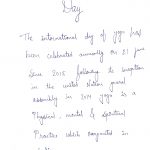 Day
- The international day of yoga has
been celebrated annually on 21 june
since 2015 following its inception
in the united nation
assembly in 2014 yoga is a
Physical, mental & spiritual
Practice which originated in